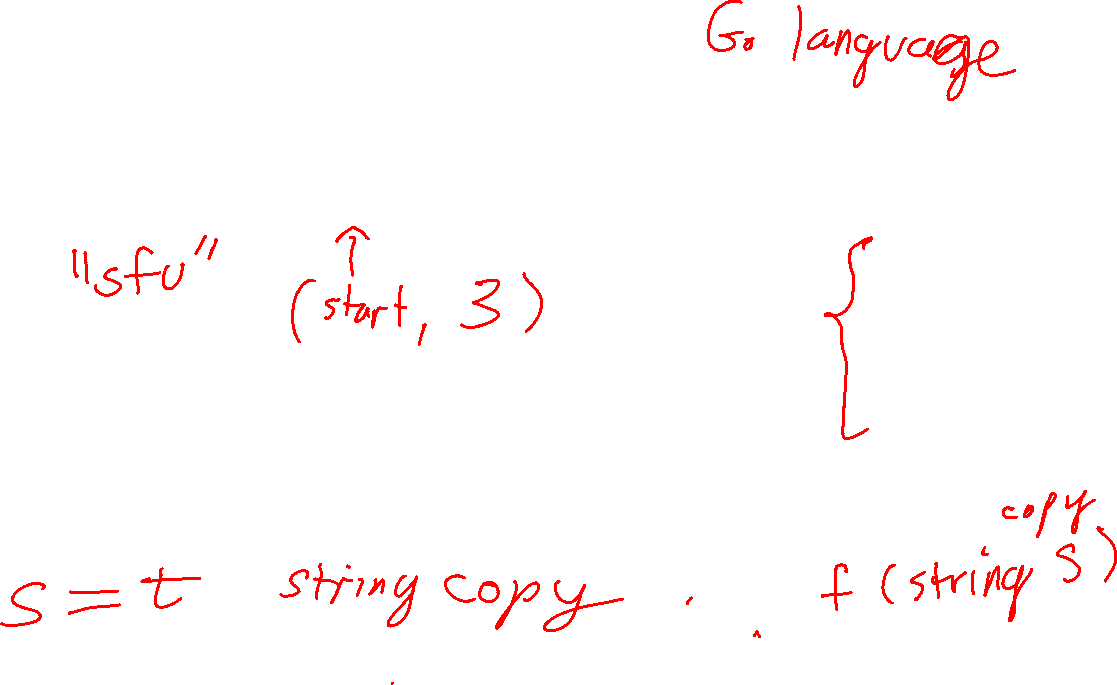 Go language
"sfu" (start, 3) {
copy
s = t string copy . f(string s)